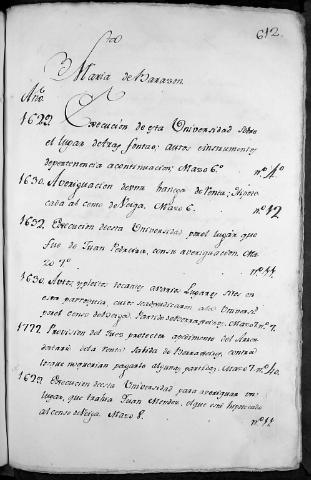 Sta
612.
Maria de Barason
Año.
1622. Execucion de esta Universidad sobre
el lugar de tras fontao; autos e instrumentos
de pertenencia a continuacion; Mazo 6.º nº 4º
1630. Averiguacion de una hanega de Renta; Hipote
cada al censo de Veiga. Mazo 6. nº 12
1632. Execucion de esta Universidad por el lugar que
fue de Juan Pedreira, con su averiguacion. Ma-
zo 7º nº 44.
1630. Autos, y pleitos tocantes a varios Lugares sitos en
esta parroquia, que se adjudicaron a la Universid.
por el censo de Veiga. Partido de Mazo 7. nº 7.
1772. Provision del Juez protector a pedimento del Arren-
datario de la renta Sabida de contra
los que no querian pagarle algunas partidas. Mazo 7. nº 40.
1623. Execucion de esta Universidad para averiguar un
lugar, que trahia Juan Mendez, y que esté hipotecado
al censo de Veiga. Mazo 8. nº 11